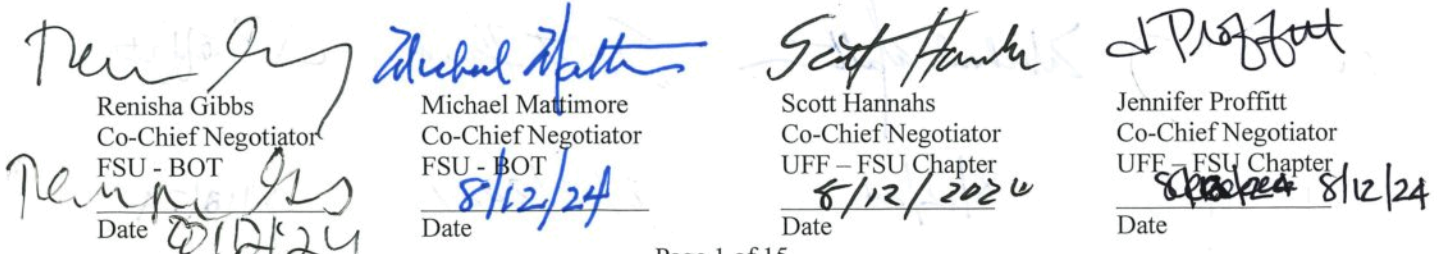 Renisha Gibbs
Co-Chief Negotiator
FSU - BOT
Date 8/12/24
Michael Mattimore
Co-Chief Negotiator
FSU - BOT
8/12/24
Date
Scott Hannahs
Co-Chief Negotiator
UFF – FSU Chapter
8/12/2024
Date
J Proffitt
Jennifer Proffitt
Co-Chief Negotiator
UFF – FSU Chapter
8/12/24
Date
Page 1 of 15